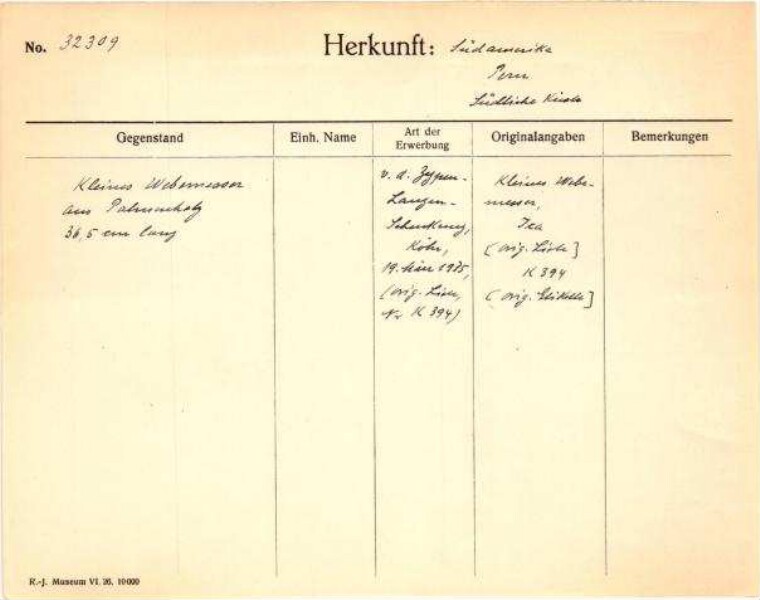 No. 32309
Herkunft: Südamerika
Peru
Südliche Küste
Gegenstand
Einh. Name
Art der
Erwerbung
Originalangaben
Bemerkungen
Kleines Webemesser
aus Palmenholz
36,5 cm lang
v. d. Zypen-
Langen-
Schenkung,
Köln,
19. März 1975,
(orig. Liste,
Nr K 394)
Kleines Webe-
messer,
Ica
(orig. Liste]
K 394
(orig. Etikette]
R.-J. Museum VI. 26. 10000